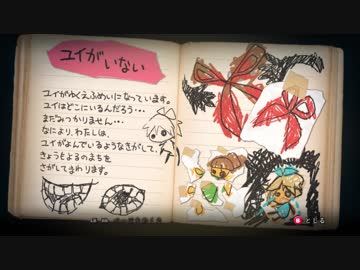 ユイがいない
ユイがゆくえふめいになっています。
ユイはどこにいるんだろう・・・
まだみつかりません・・・
なにより、わたしは、
ユイがよんでいるようなきがして、
きょうもよるのまちを
さがしてまわります。
とじる